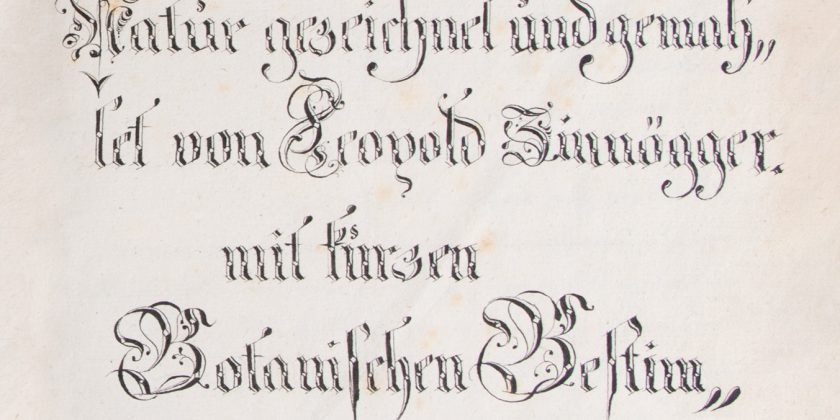 Natur gezeichnet und gemah„
let von Leopold Zinnögger.
mit kurzen
Botanischen Bestim„